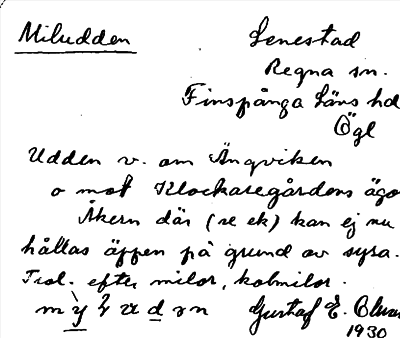 Miludden
Senestad
Regna sn.
Finspånga Läns hd
Ögl
Udden v. om Ängviken
o mot Klockaregårdens ägo
Åkern där (se ek) kan ej nu
hållas öppen på grund av syra.
Trol. efter milor, kolmilor.
Gustaf E.
1930